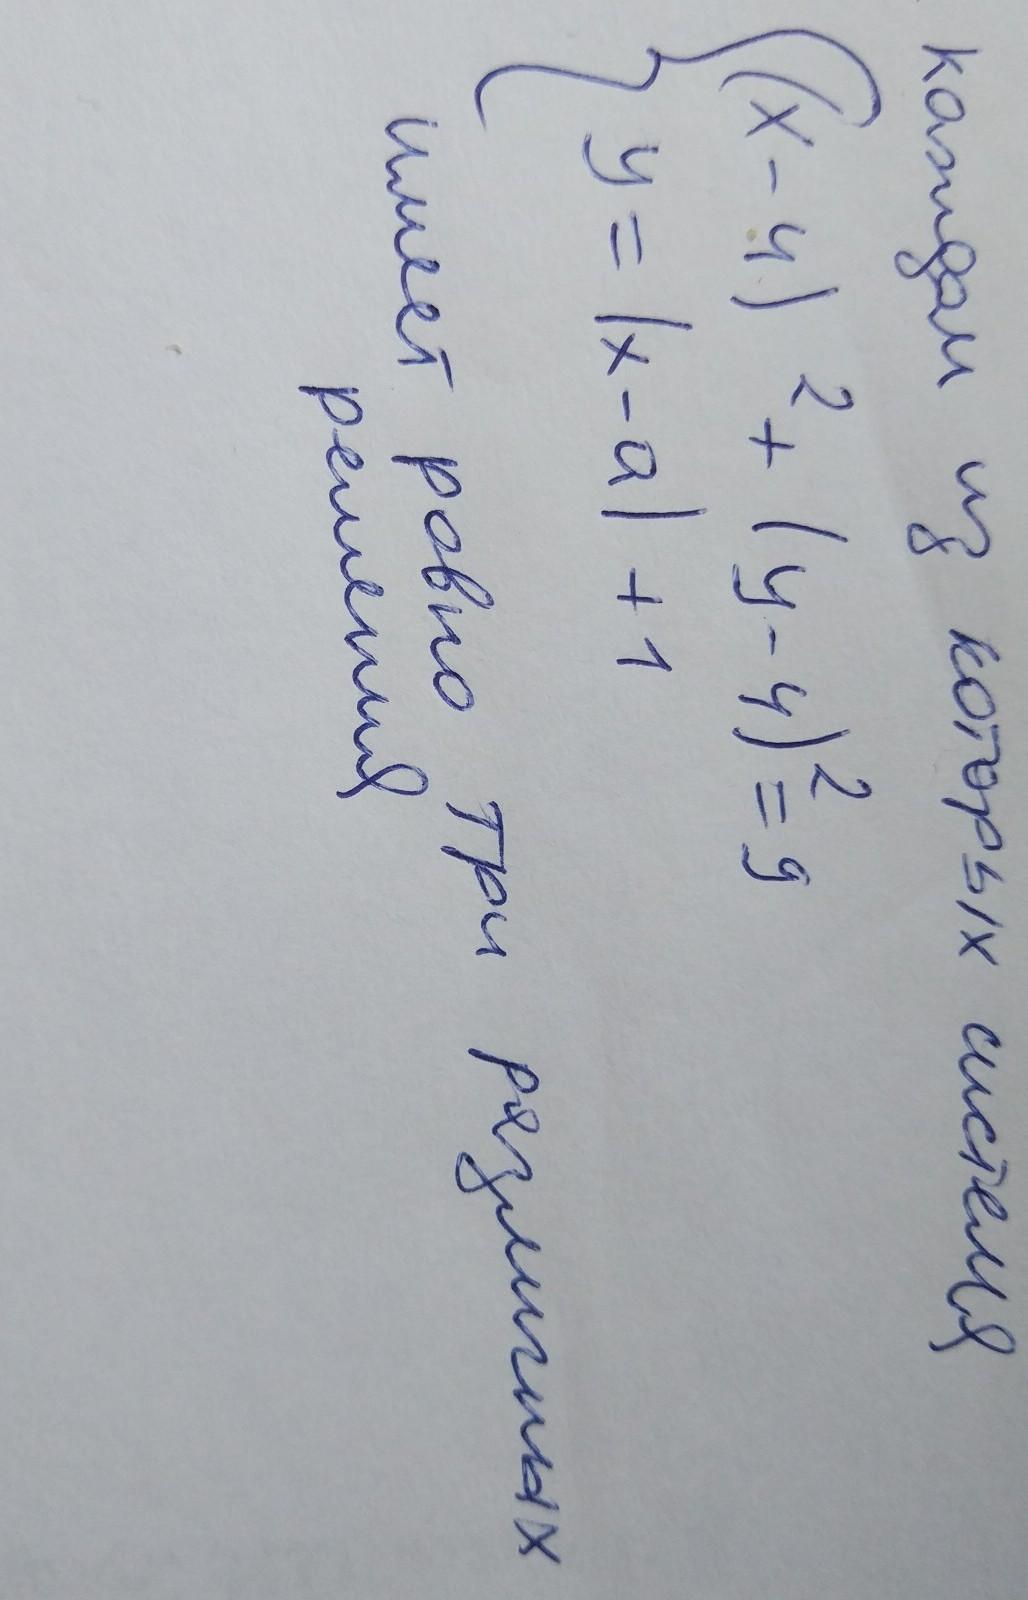 каждом из которых система
(x-4)² + (y-4)² = 9
y = |x-a| + 1
имеет ровно три различных
решения